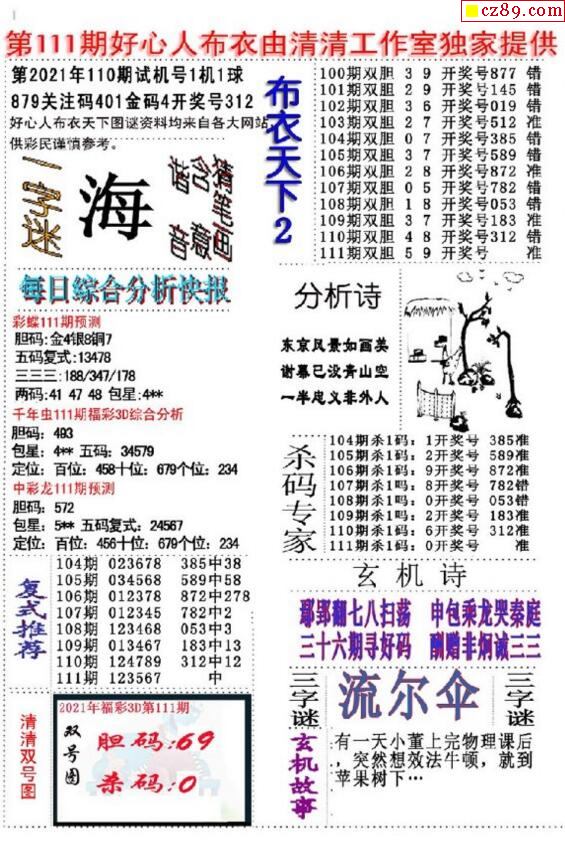 cz89.com
第111期好心人布衣由清清工作室独家提供
第2021年110期试机号1机1球
879关注码401金码4开奖号312
好心人布衣天下图谜资料均来自各大网站
供彩民谨慎参考。
一字谜
海
猜笔画
含意
谐音
布衣天下2
100期双胆 3 9 开奖号877 错
101期双胆 2 9 开奖号145 错
102期双胆 3 6 开奖号019 错
103期双胆 2 7 开奖号512 准
104期双胆 0 7 开奖号385 错
105期双胆 3 7 开奖号589 错
106期双胆 2 8 开奖号872 准
107期双胆 0 5 开奖号782 错
108期双胆 1 8 开奖号053 错
109期双胆 3 7 开奖号183 准
110期双胆 4 8 开奖号312 错
111期双胆 5 9 开奖号 准
每日综合分析快报
彩蝶111期预测
胆码:金4银8铜7
五码复式:13478
三三三:188/347/178
两码:41 47 48 包星:4**
千年虫111期福彩3D综合分析
胆码: 493
包星: 4** 五码: 34579
定位: 百位: 458十位: 679个位: 234
中彩龙111期预测
胆码: 572
包星: 5** 五码复式: 24567
定位: 百位: 456十位: 679个位: 234
分析诗
东京风景如画美
谢幕已没青山空
一半忠义非外人
杀码专家
104期杀1码: 1开奖号 385准
105期杀1码: 2开奖号 589准
106期杀1码: 9开奖号 872准
107期杀1吗: 8开奖号 782错
108期杀1吗: 0开奖号 053错
109期杀1码: 2开奖号 183准
110期杀1码: 6开奖号 312准
111期杀1码: 0开奖号 准
复式推荐
104期 023678 385中38
105期 034568 589中58
106期 012378 872中278
107期 012345 782中2
108期 123468 053中3
109期 013467 183中13
110期 124789 312中12
111期 123567 中
玄机诗
鄢郢翻七八扫荡 申包乘龙哭秦庭
三十六期寻好码 酬赠非炯诚三三
清清双号图
2021年福彩3D第111期
双号图
胆码:69
杀码:0
三字谜
流尔伞
三字谜
玄机故事
有一天小董上完物理课后
，突然想效法牛顿，就到
苹果树下…